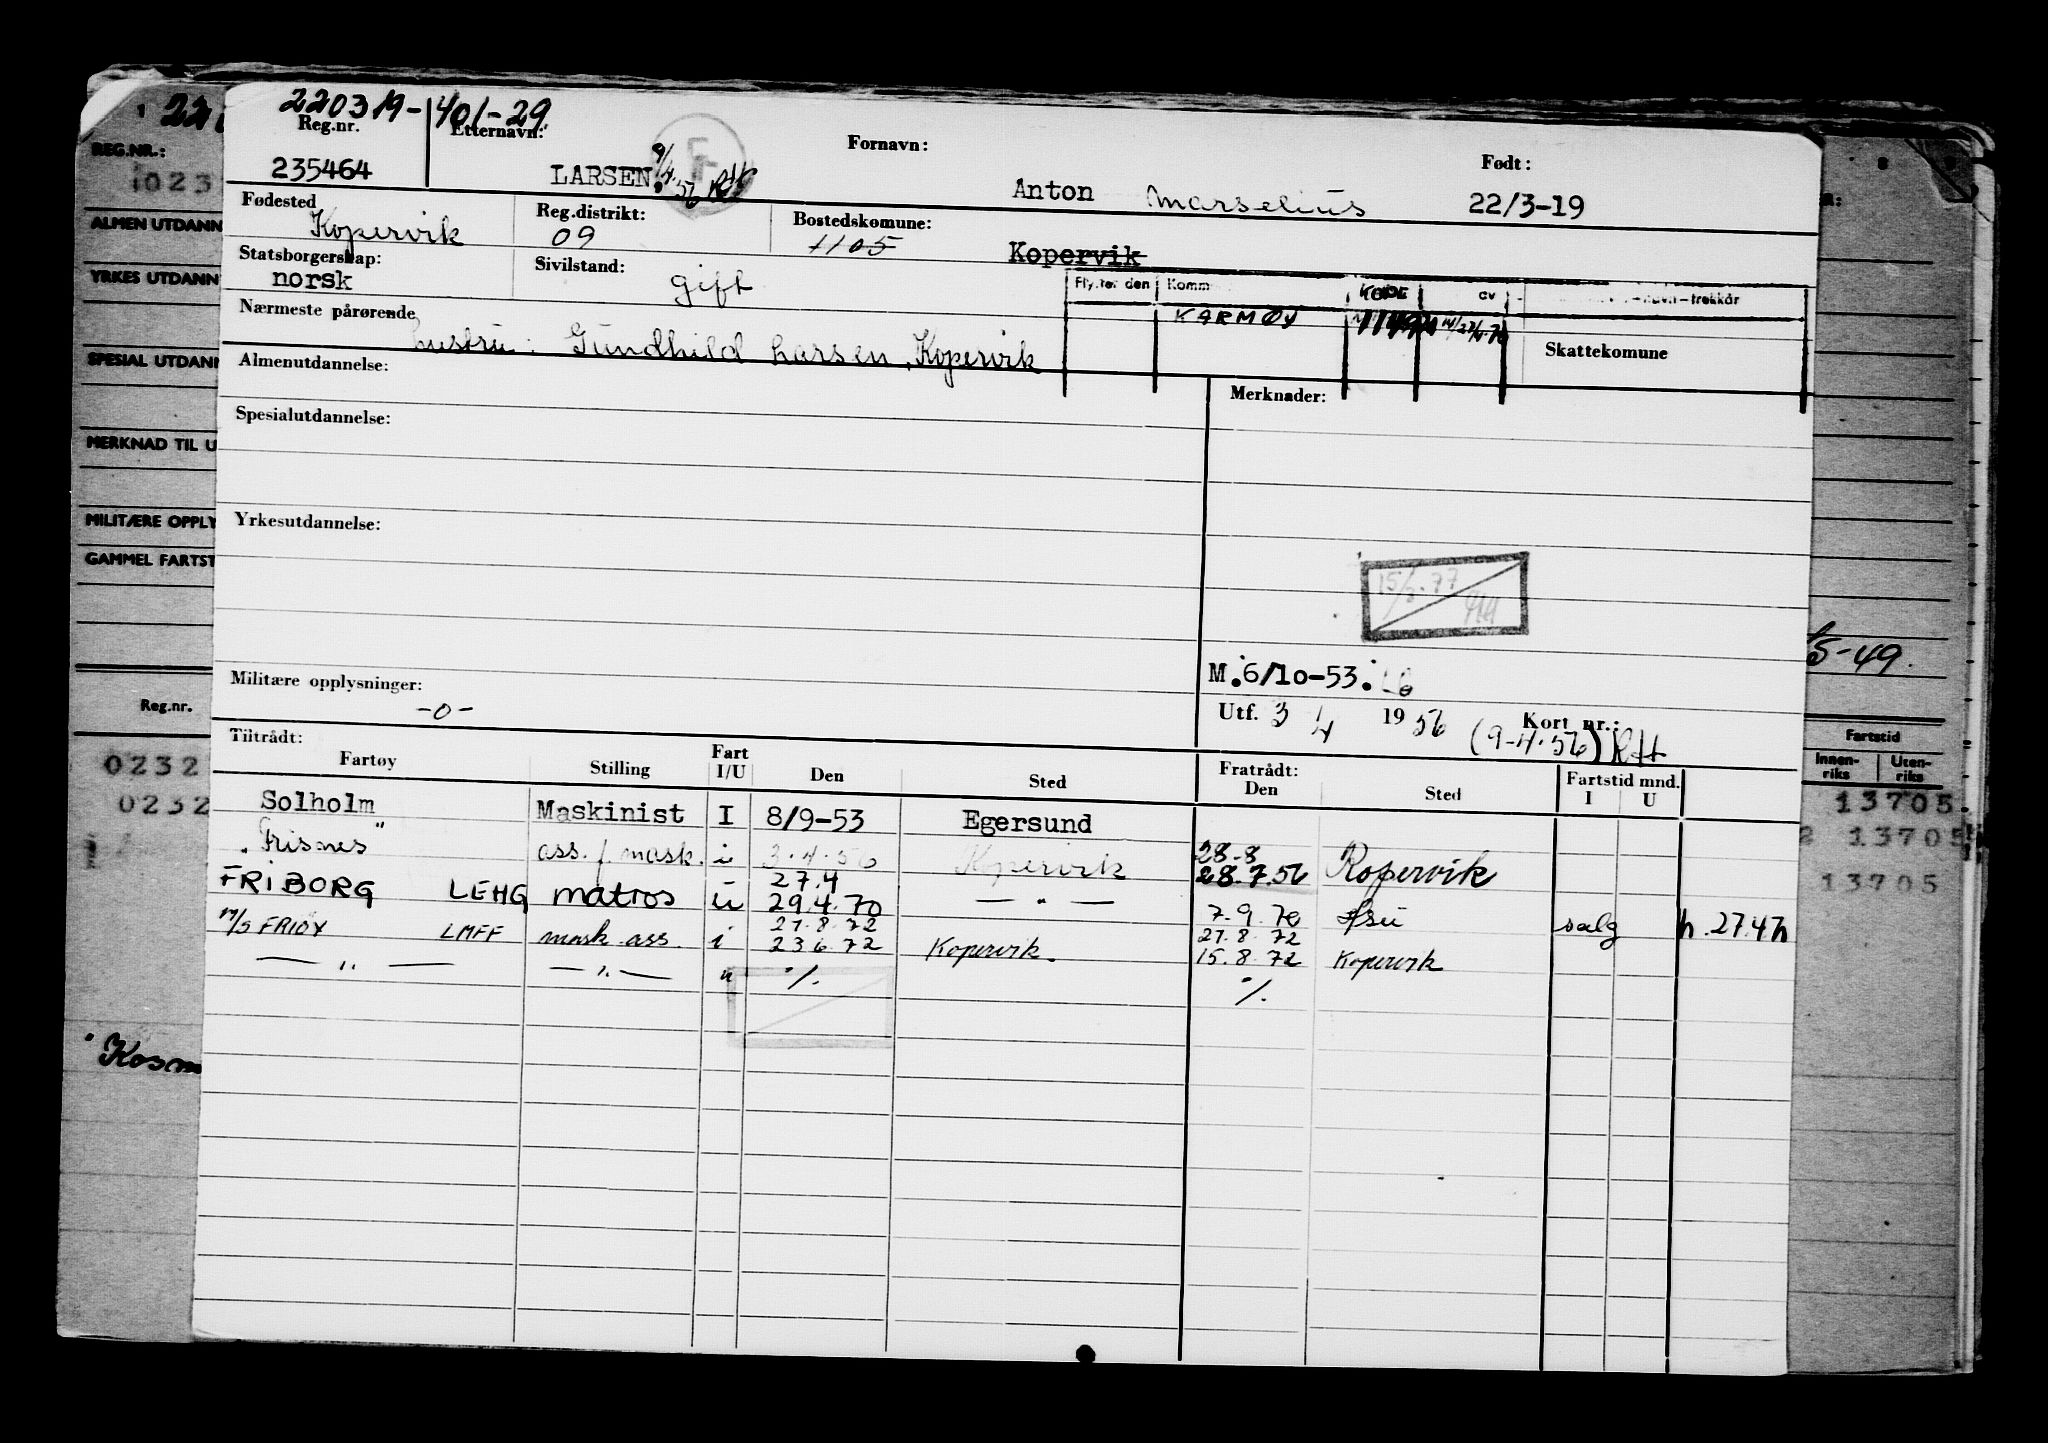 220319-401-29
Reg.nr. Etternavn: Fornavn: Født:
235464 LARSEN. 9/4.56 RH Anton Marselius 22/3-19
Fødested Reg.distrikt: Bostedskomune:
Kopervik 09 1105 Kopervik
Statsborgerskap: Sivilstand:
norsk gift
Komm KODE
KARMØY
Nærmeste pårørende
hustru: Gundhild Larsen, Kopervik
Skattekomune
Almenutdannelse: Merknader:
Spesialutdannelse:
Yrkesutdannelse:
M. 6/10-53.
Militære opplysninger:
-0-
Utf. 3/4 1956 Kort nr.:
(9-4.56) RH
Tiltrådt: Fratrådt:
Fartøy Stilling Fart I/U Den Sted Den Sted Fartstid mnd. I U
Solholm Maskinist I 8/9-53 Egersund
"Frisnes" ass. f. mask. i 3.4.56 Kopervik 28-8 28.7.56 Kopervik
FRIBORG LEHG matros u 27.4 29.4.70 — " — 7.9.70 salg h. 27.47h
M/S FRIOY LMFF mask ass. i 27.8.72 23 6 72 Kopervik. 27.8.72 15.8.72 Kopervik
— " — — " — u %. %.
REG.NR.:
1023
ALMEN UTDANN
YRKES UTDANN
SPESIAL UTDANN
MERKNAD TIL U
MILITÆRE OPPLY
GAMMEL FARTST
Reg.nr.
0232
0232
Kosm
5-49.
Fartstid
Innen-riks Uten-riks
13705
2 13705
13705